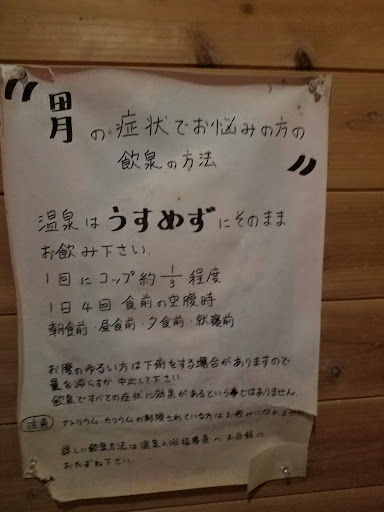 〝胃の症状でお悩みの方の
飲泉の方法〟
温泉はうすめずにそのまま
お飲み下さい.
1回にコップ約1/3程度
1日4回 食前の空腹時
朝食前・昼食前・夕食前・就寝前
お腹のゆるい方は下痢をする場合がありますので
量を減らすか中止して下さい.
飲泉ですべての症状に効果があるという事ではありません
注意 ナトリウム・カリウムの制限されている方はお飲みになれません
詳しい飲泉方法は温泉入浴指導員へ お気軽に
おたずね下さい.